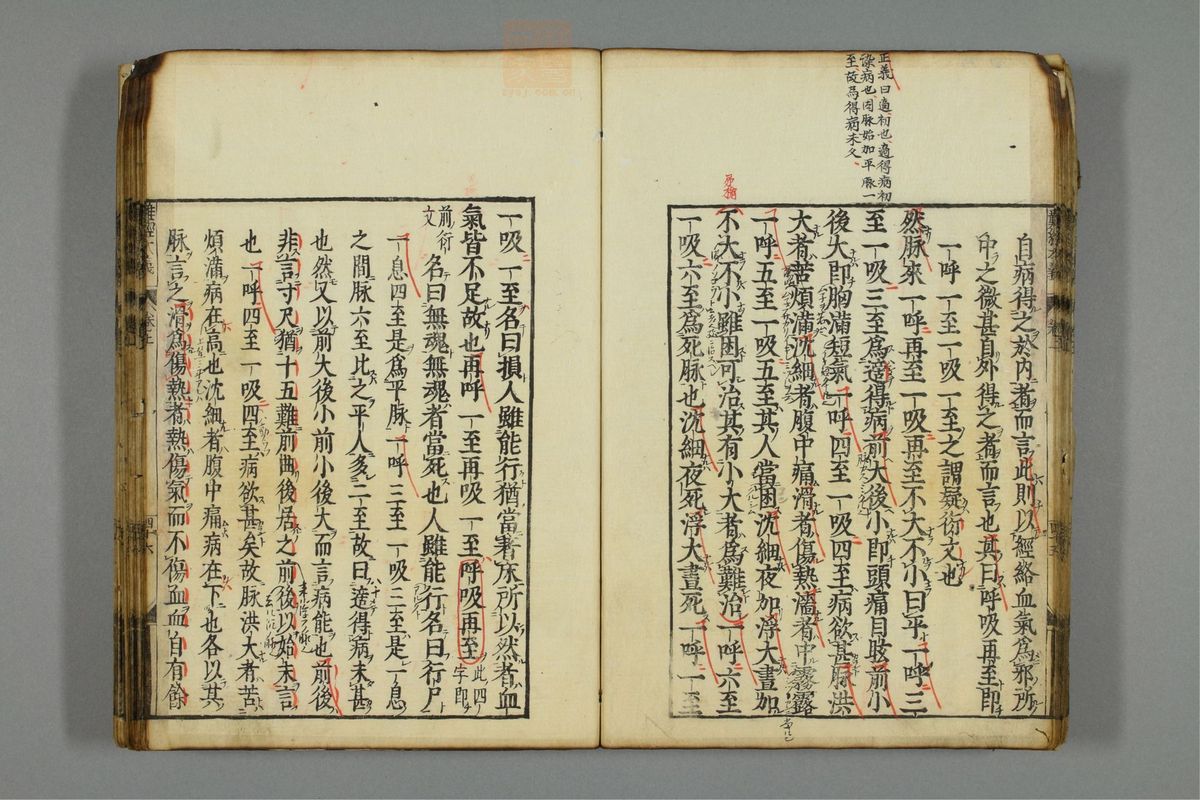 正義曰適初也適得病初
染病也因脉始加平脉一
至故爲得病未久
自病得之於内者而言此則以經絡血氣爲邪所
中之微甚自外得之者而言也其曰呼吸再至即
一呼一至一吸一至之謂疑衍文也
然脉來一呼再至一吸再至不大不小曰平一呼三
至一吸三至爲適得病前大後小即頭痛目眩前小
後大即胸滿短氣一呼四至一吸四至病欲甚脉洪
大者苦煩滿沈細者腹中痛滑者傷熱濇者中霧露
一呼五至一吸五至其人當困沈細夜加浮大晝加
不大不小雖困可治其有小大者爲難治一呼六至
一吸六至爲死脉也沈細夜死浮大晝死一呼一至
一吸一至名曰損人雖能行猶當著床所以然者血
氣皆不足故也再呼一至再吸一至呼吸再至此四字即
前衍文名曰無魂無魂者當死也人雖能行名曰行尸
一息四至是爲平脉一呼三至一吸三至是一息
之間脉六至比之平人多二至故曰適得病未甚
也然又以前大後小前小後大而言病能也前後
非言寸尺猶十五難前曲後居之前後以始末言
也一呼四至一吸四至病欲甚矣故脉洪大者苦
煩滿病在高也沈細者腹中痛病在下也各以其
脉言之滑爲傷熱者熱傷氣而不傷血血自有餘